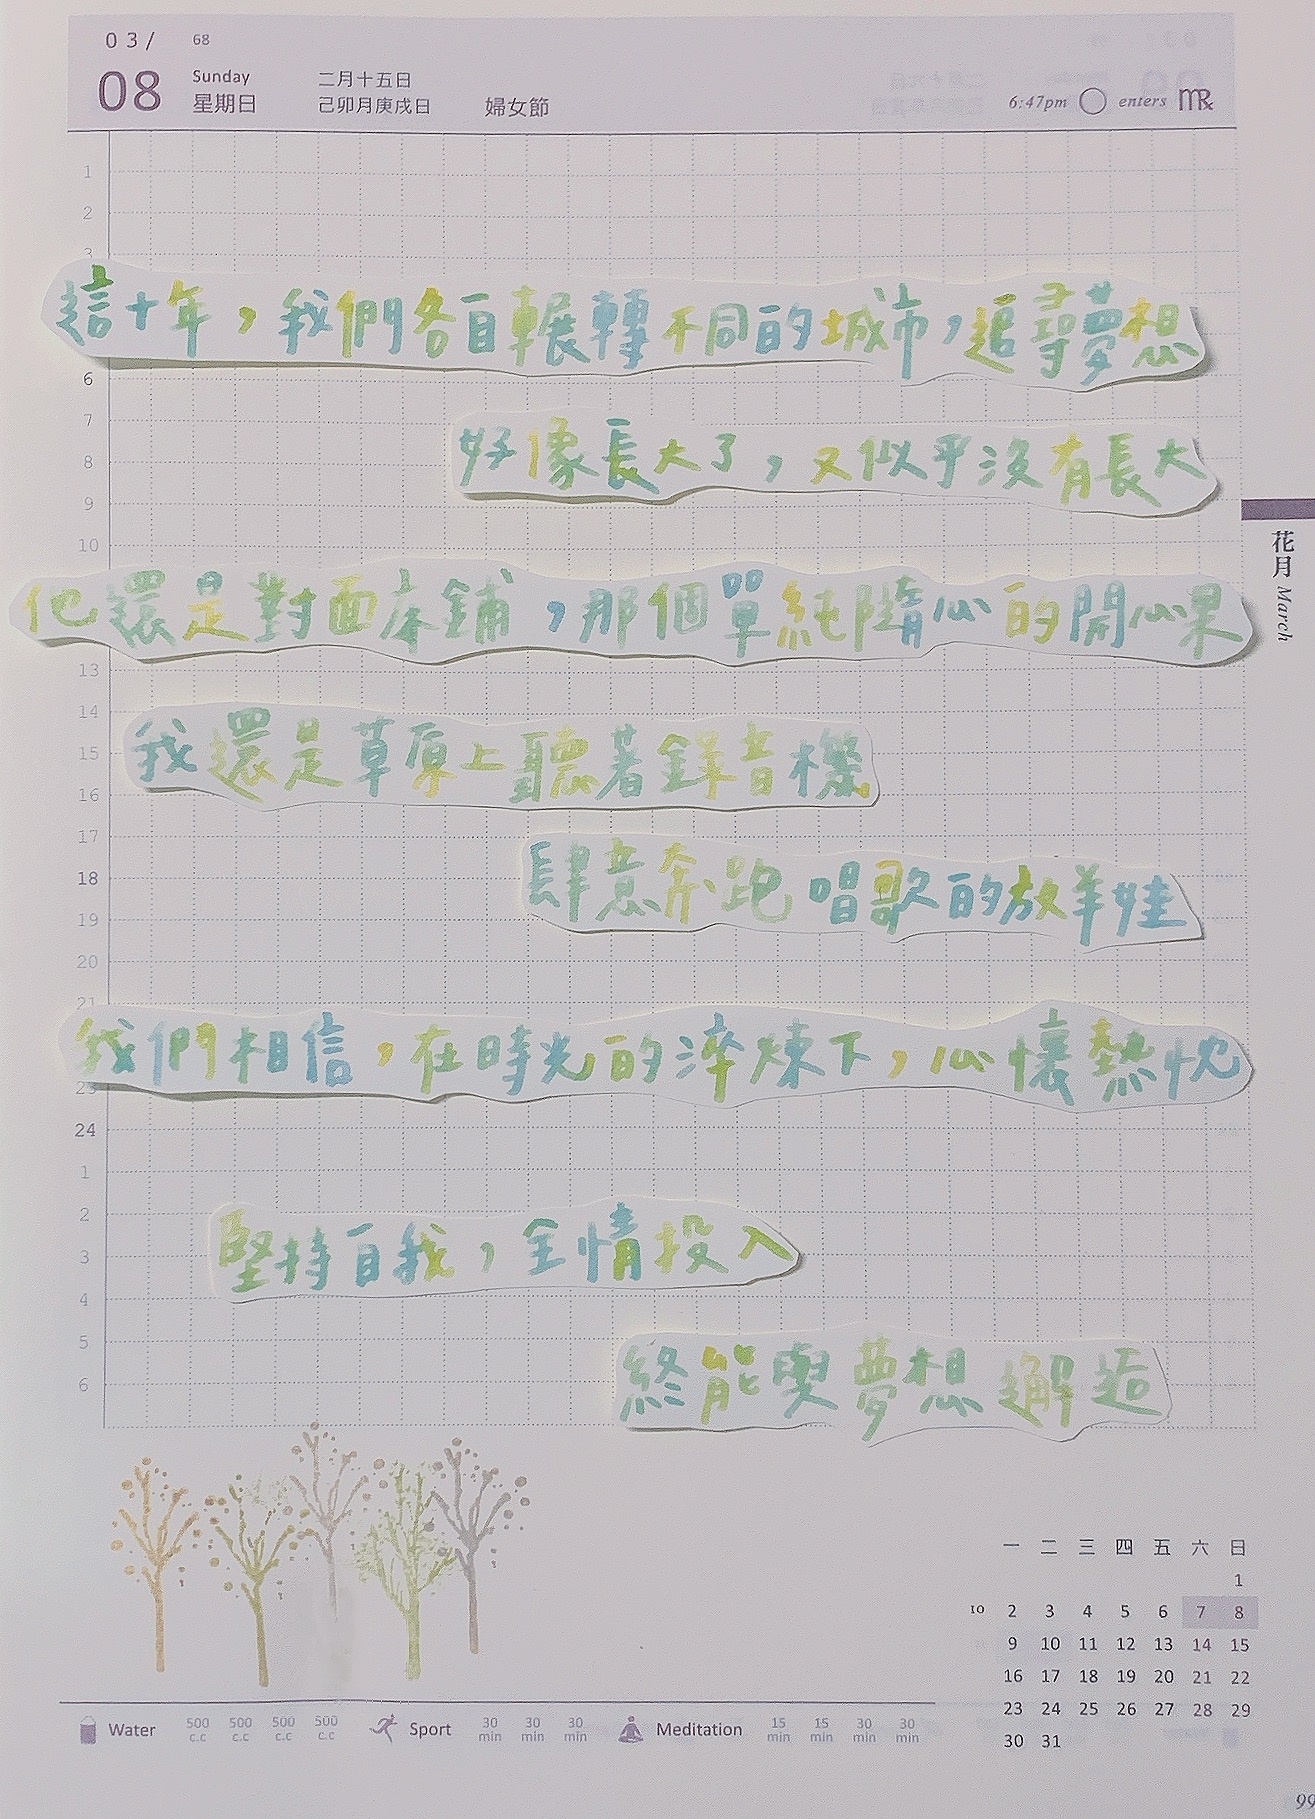 03/ 68
08 Sunday 二月十五日
星期日 己卯月庚戌日 婦女節 6:47pm enters
1
2
3
這十年，我們各自輾轉不同的城市，追尋夢想
6
7
好像長大了，又似乎沒有長大
8
9
10
他還是對面床鋪，那個單純隨心的開心果
13
14
我還是草原上聽著錄音機
15
16
17
肆意奔跑 唱歌的放羊娃
18
19
20
21
我們相信，在時光的淬煉下，心懷熱忱
23
24
1
2
堅持自我，全情投入
3
4
5
終能與夢想邂逅
6
花月 March
一 二 三 四 五 六 日
1
10 2 3 4 5 6 7 8
9 10 11 12 13 14 15
16 17 18 19 20 21 22
23 24 25 26 27 28 29
30 31
Water 500 c.c 500 c.c 500 c.c 500 c.c Sport 30 min 30 min 30 min Meditation 15 min 15 min 30 min 30 min
99